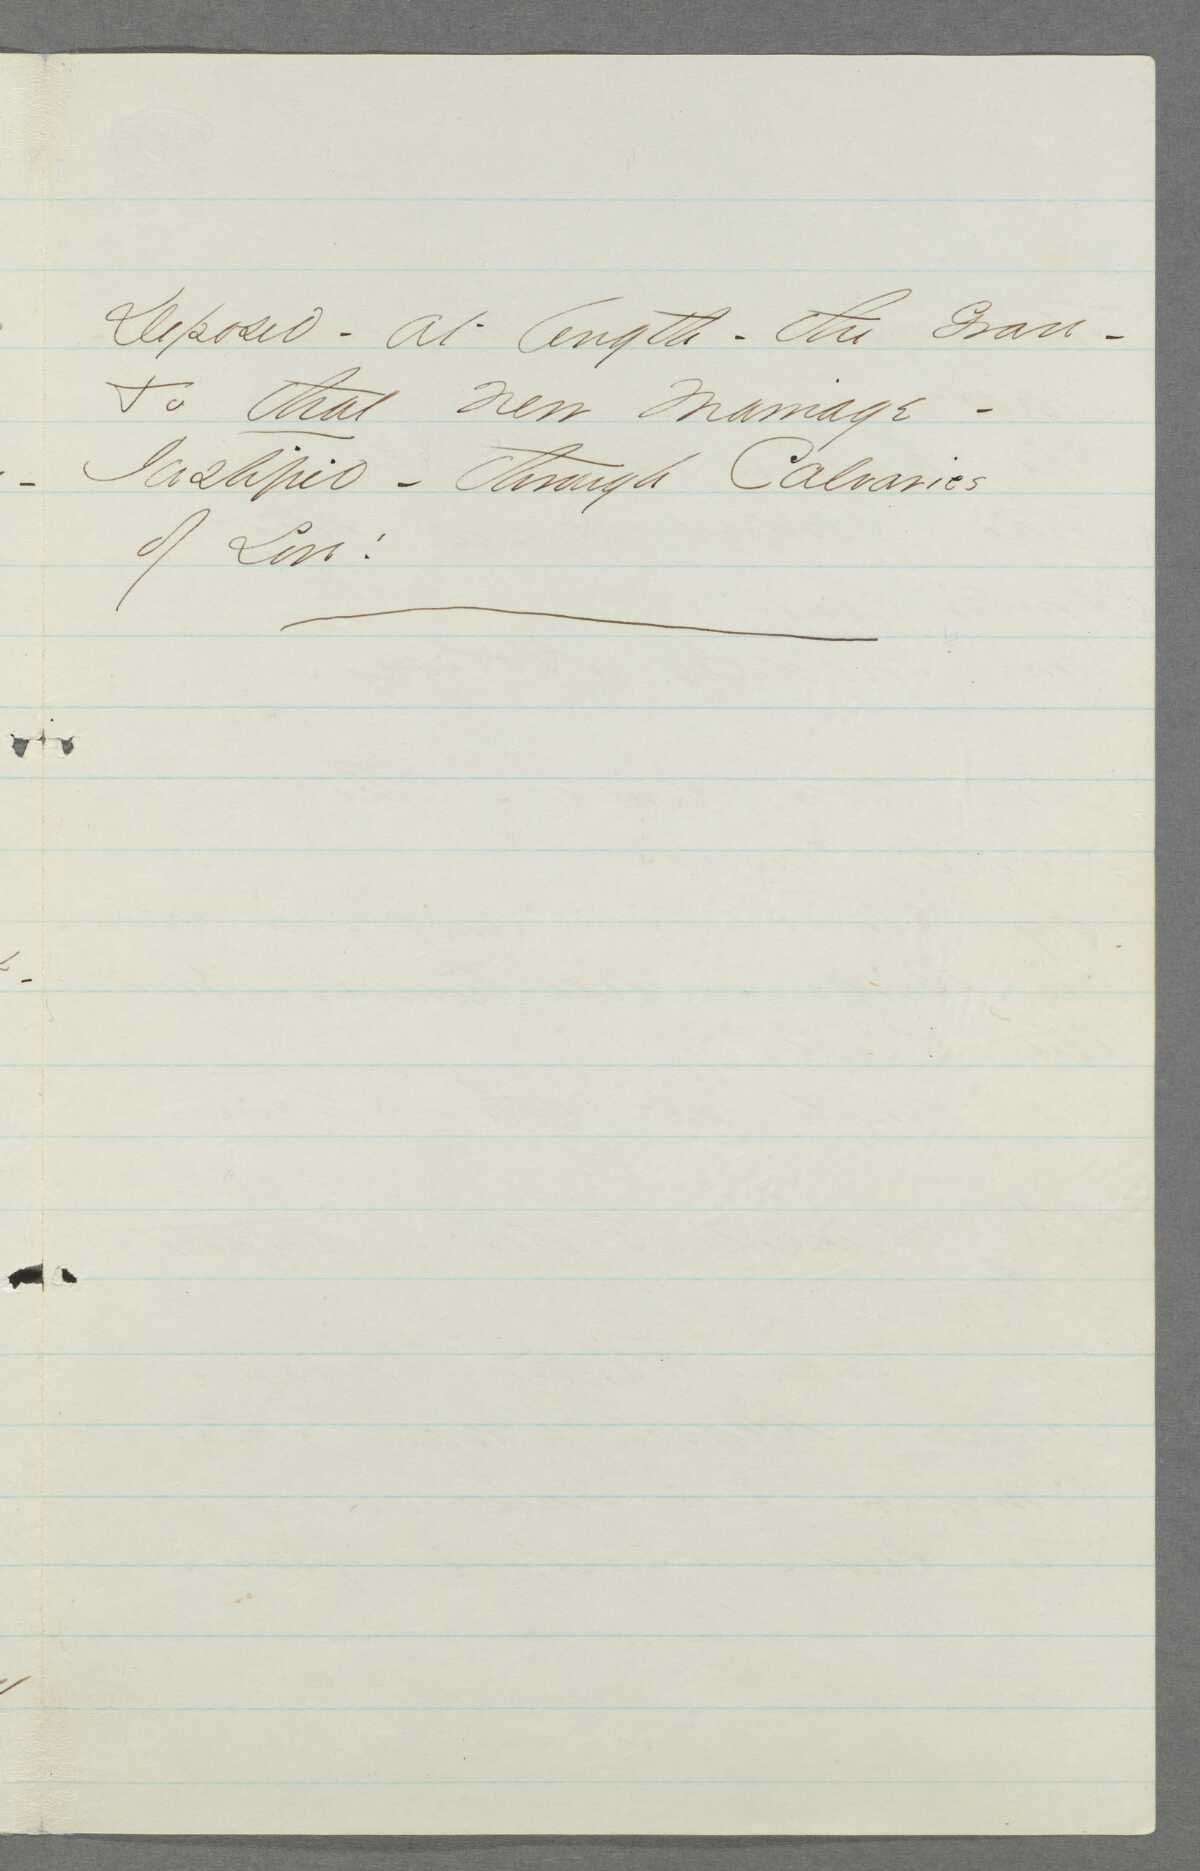 Deposed - at length - the Grave -
To that new Marriage -
Justified - through Calvaries
of Love!